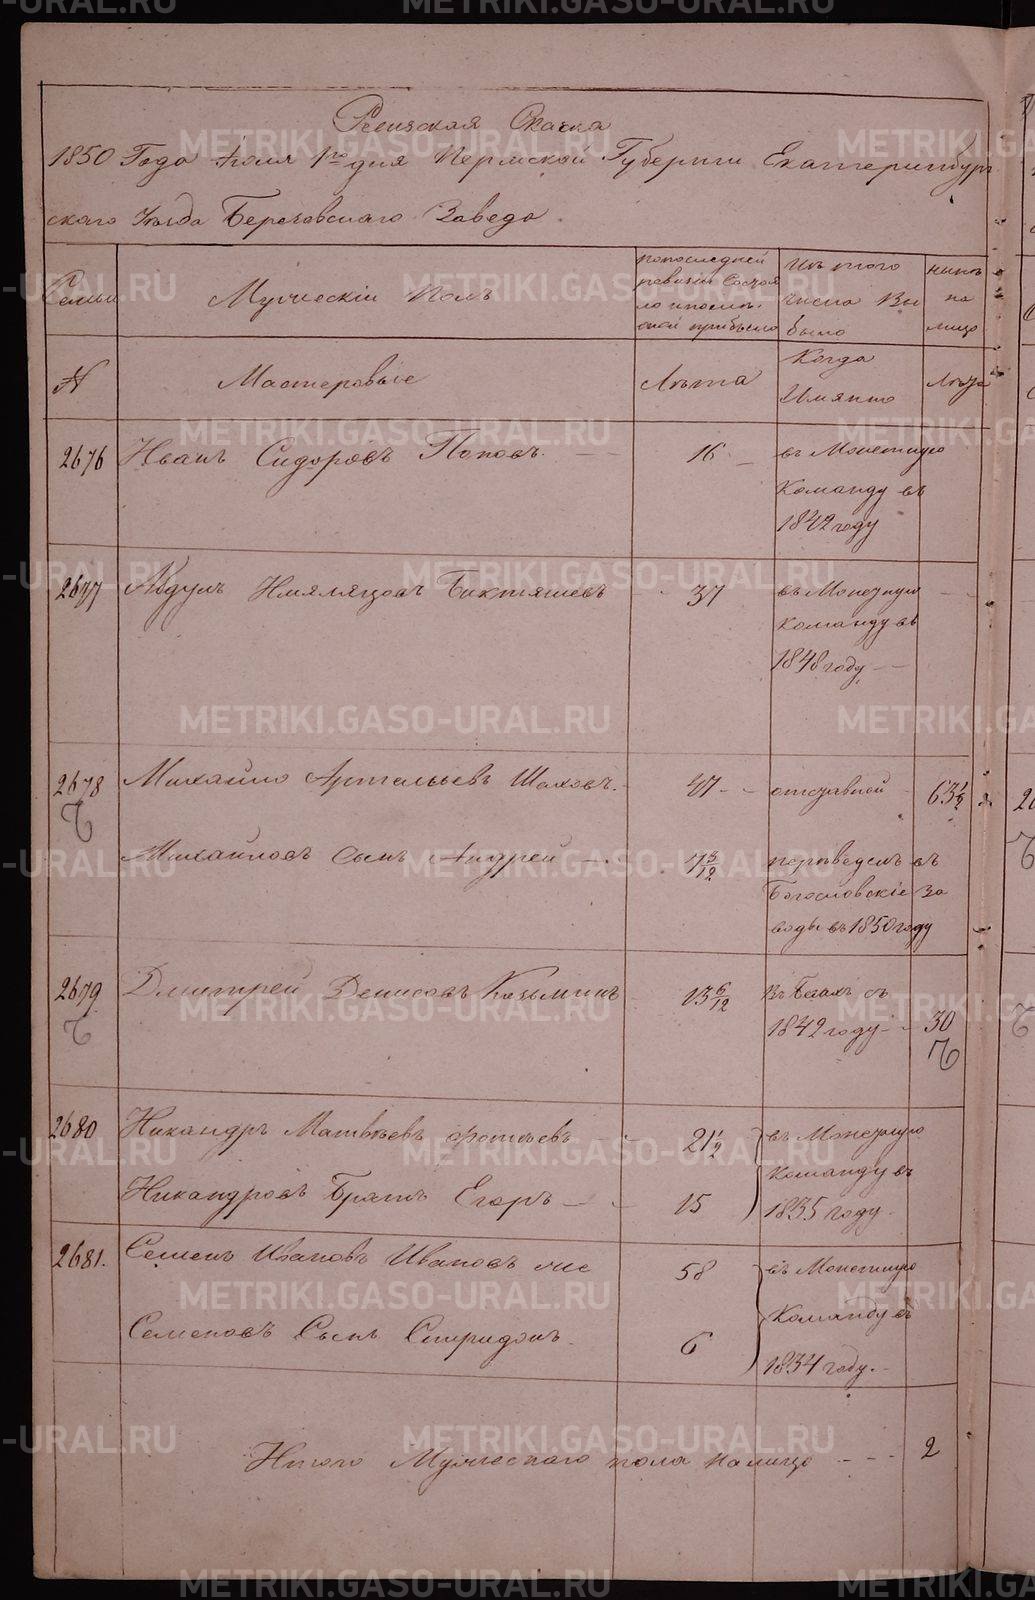 Ревизская Сказка
1850 Года Іюля 1го дня Пермской Губерніи Екатеринбург
скаго Уезда Березовскаго Завода
Семьи
Мужескій Полъ
попоследней
ревизіи Состоя
ло ипосле
оной прибыло
Изъ того
числа Вы
было
ныне
на
лицо
N
Мастеровые
Лѣта
Когда
Имянно
Лѣта
2676
Иванъ Сидоровъ Поповъ.
16
въ Монетную
Команду въ
1842 году
2677
Абдулъ Биктяшевъ
37
въ Монетную
Команду въ
1848 году
2678
Михайло Шаховъ.
47
отставной
63 1/2
Михайловъ Сынъ Андрей
7 3/12
переведенъ въ
Богословскіе За
воды въ 1850 году
2679
Дмитрей Денисовъ Козьминъ
13 6/12
Въ бегахъ съ
1842 году
30
2680
Никандръ Матвѣевъ Фотеевъ
21 1/2
въ Монетную
Команду въ
1835 году.
Никандровъ Братъ Егоръ
15
2681.
Семенъ Ивановъ Ивановъ же
58
въ Монетную
Команду въ
1834 году.
Семеновъ Сынъ Спиридонъ
6
Итого Мужескаго пола налицо
2
METRIKI.GASO-URAL.RU